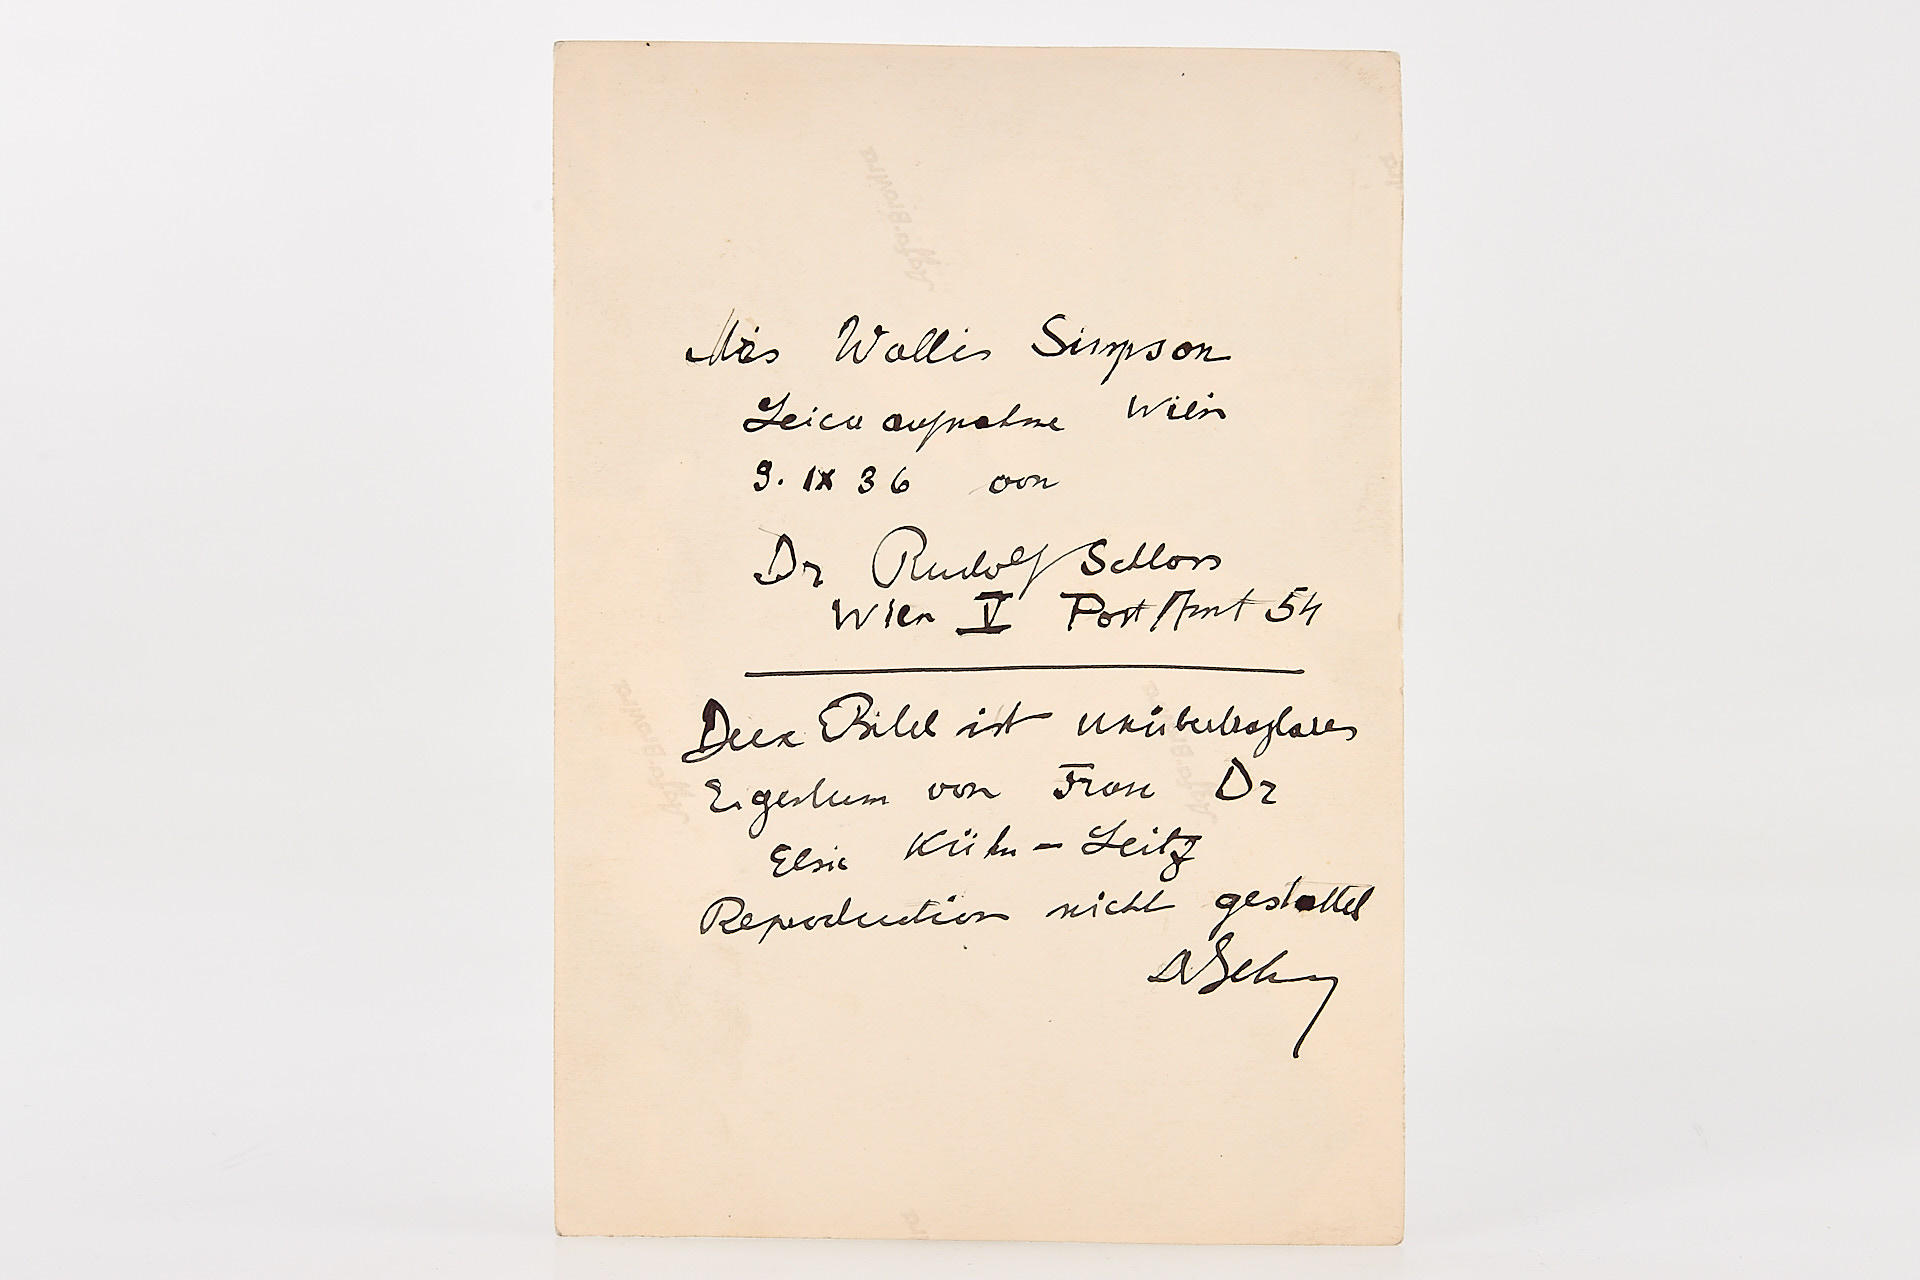 Mrs Wallis Simpson
Leica aufnahme Wien
9. IX 36 von
Dr Rudolf Schloss
Wien V Post Amt 54
Bild ist unübertragbares
Eigentum von Frau Dr
Elsie Kühn - Leitz
Reproduction nicht gestattet
Agfa-Brovira
Agfa-Brovira
Agfa-Brovira